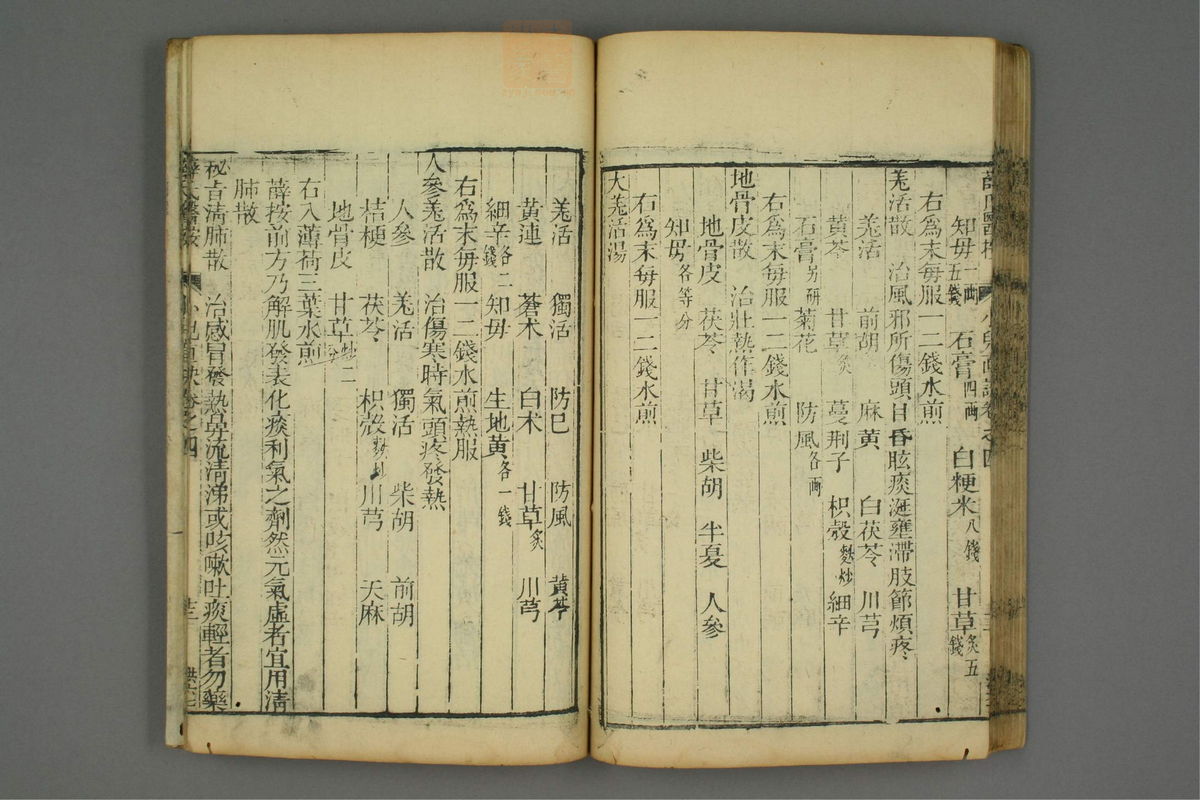 知母一兩五錢 石膏四兩 白粳米八錢 甘草炙五錢
右爲末每服一二錢水煎
羌活散 治風邪所傷頭目昏眩痰涎壅滯肢節煩疼
羌活 前胡 麻黃 白茯苓 川芎
黃芩 甘草炙 蔓荆子 枳殼麩炒 細辛
石膏另研 菊花 防風各一兩
右爲末每服一二錢水煎
地骨皮散 治壯熱作渴
地骨皮 茯苓 甘草 柴胡 半夏 人參
知母各等分
右爲末每服一二錢水煎
大羌活湯
羌活 獨活 防巳 防風 黃芩
黃連 蒼术 白术 甘草炙 川芎
細辛各二錢 知母 生地黃各一錢
右爲末每服一二錢水煎熱服
人參羌活散 治傷寒時氣頭疼發熱
人參 羌活 獨活 柴胡 前胡
桔梗 茯苓 枳殼麩炒 川芎 天麻
地骨皮 甘草炒二分
右入薄荷三葉水煎
薛按前方乃解肌發表化痰利氣之劑然元氣虛者宜用淸
肺散
秘旨淸肺散 治感冒發熱鼻流淸涕或咳嗽吐痰輕者勿藥
薛氏醫按 小兒直訣卷之四